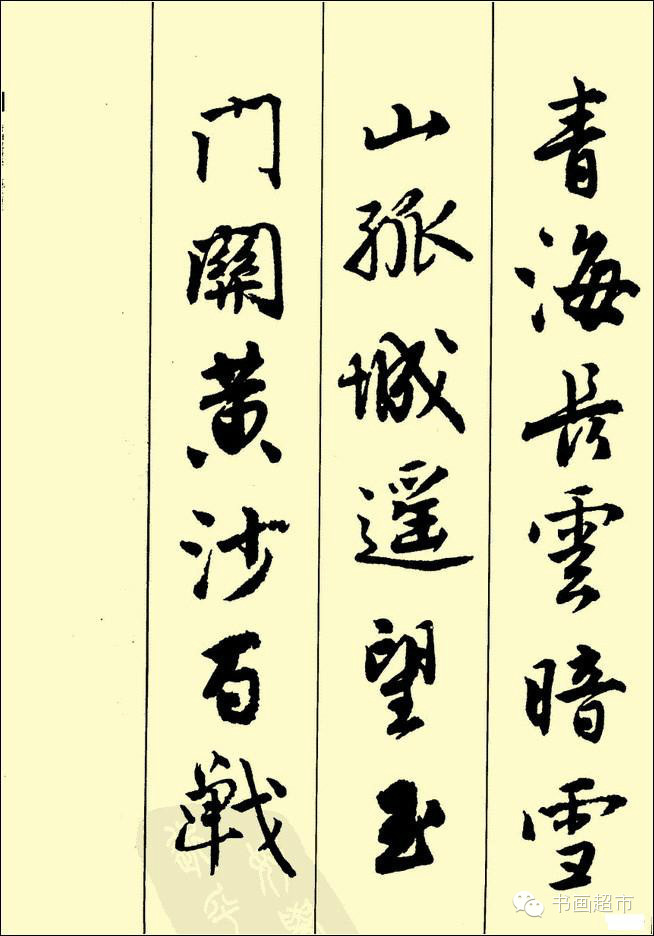 青海长雲暗雪
山孤城遥望玉
门關黄沙百戰
书画超市